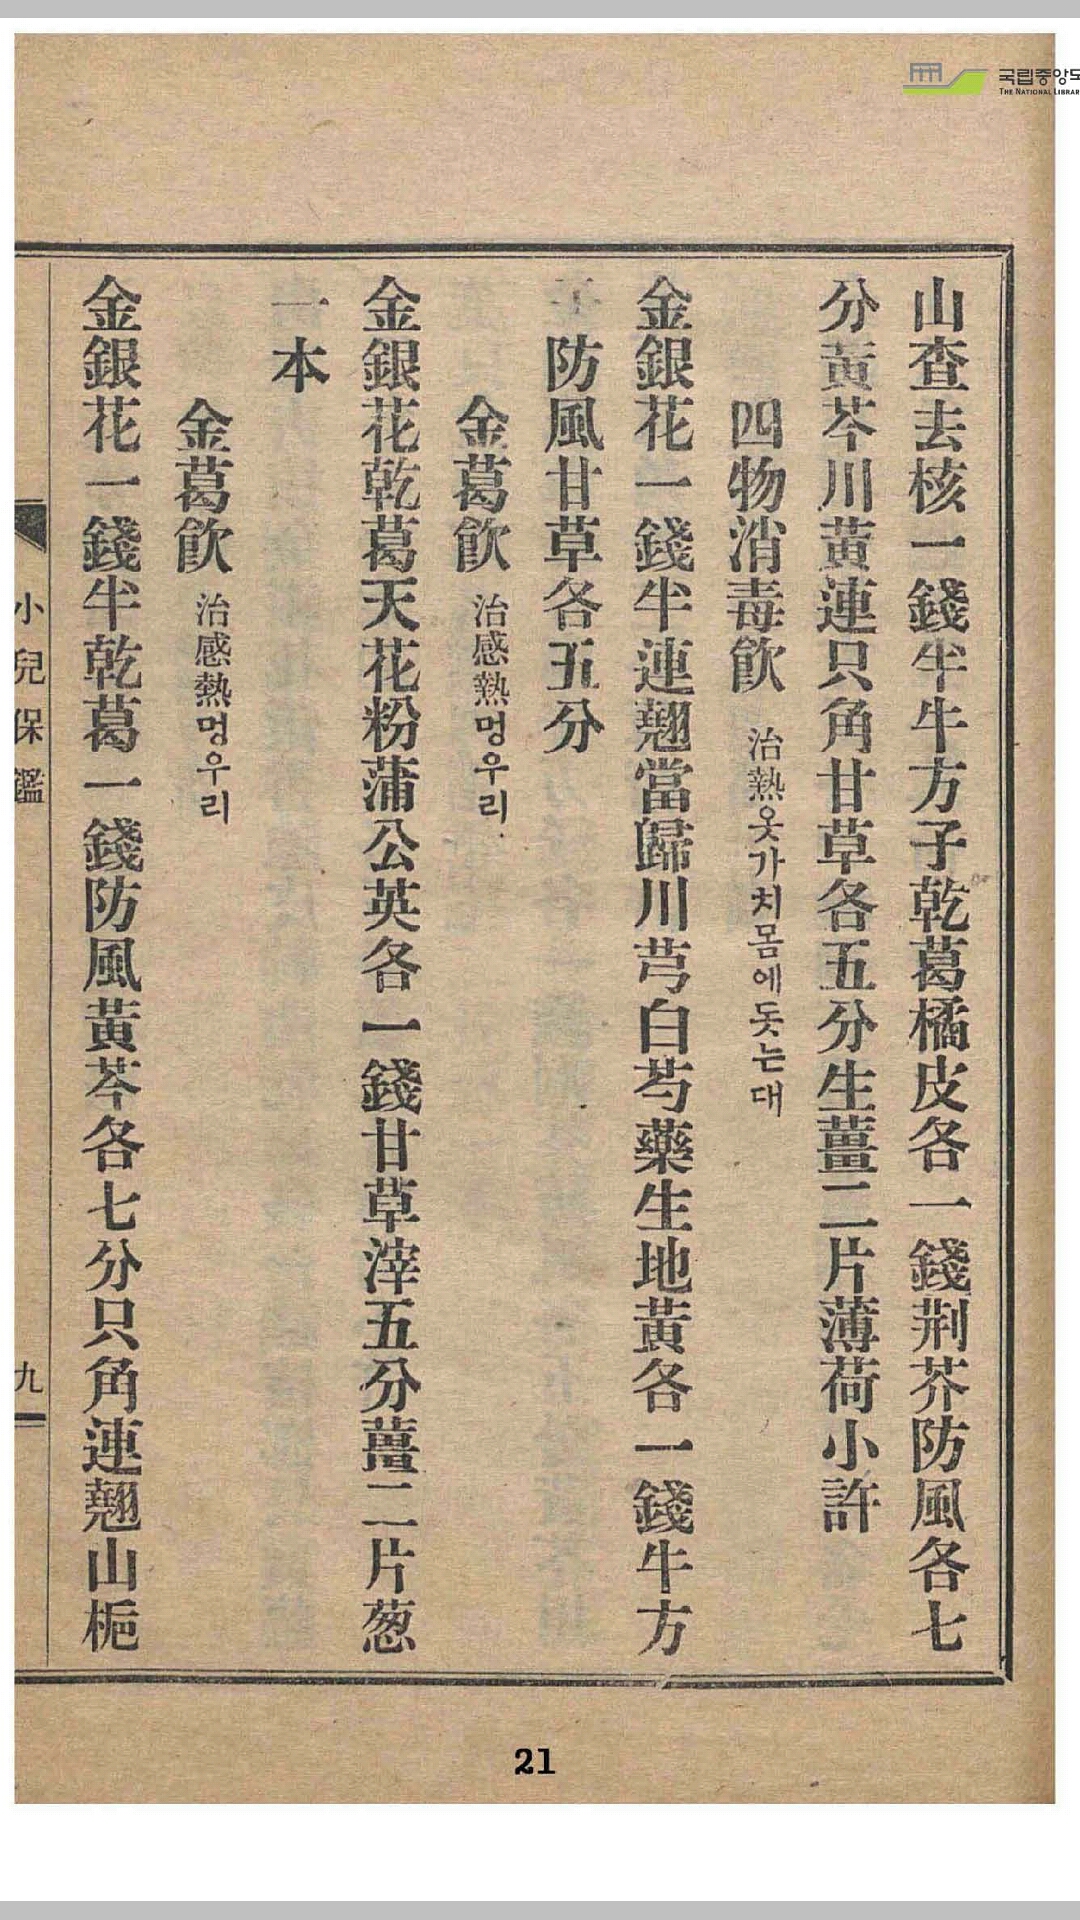 국립중앙도
THE NATIONAL LIBRAR
山査去核一錢半牛方子乾葛橘皮各一錢荆芥防風各七
分黄芩川黃連只角甘草各五分生薑二片薄荷小許
四物消毒飮 治熱옷가치몸에돗는대
金銀花一錢半連翹當歸川芎白芍藥生地黃各一錢牛方
子防風甘草各五分
金葛飮 治感熱멍우리
金銀花乾葛天花粉蒲公英各一錢甘草滓五分薑二片葱
一本
金葛飮 治感熱멍우리
金銀花一錢半乾葛一錢防風黃芩各七分只角連翹山梔
小兒保鑑 九
21